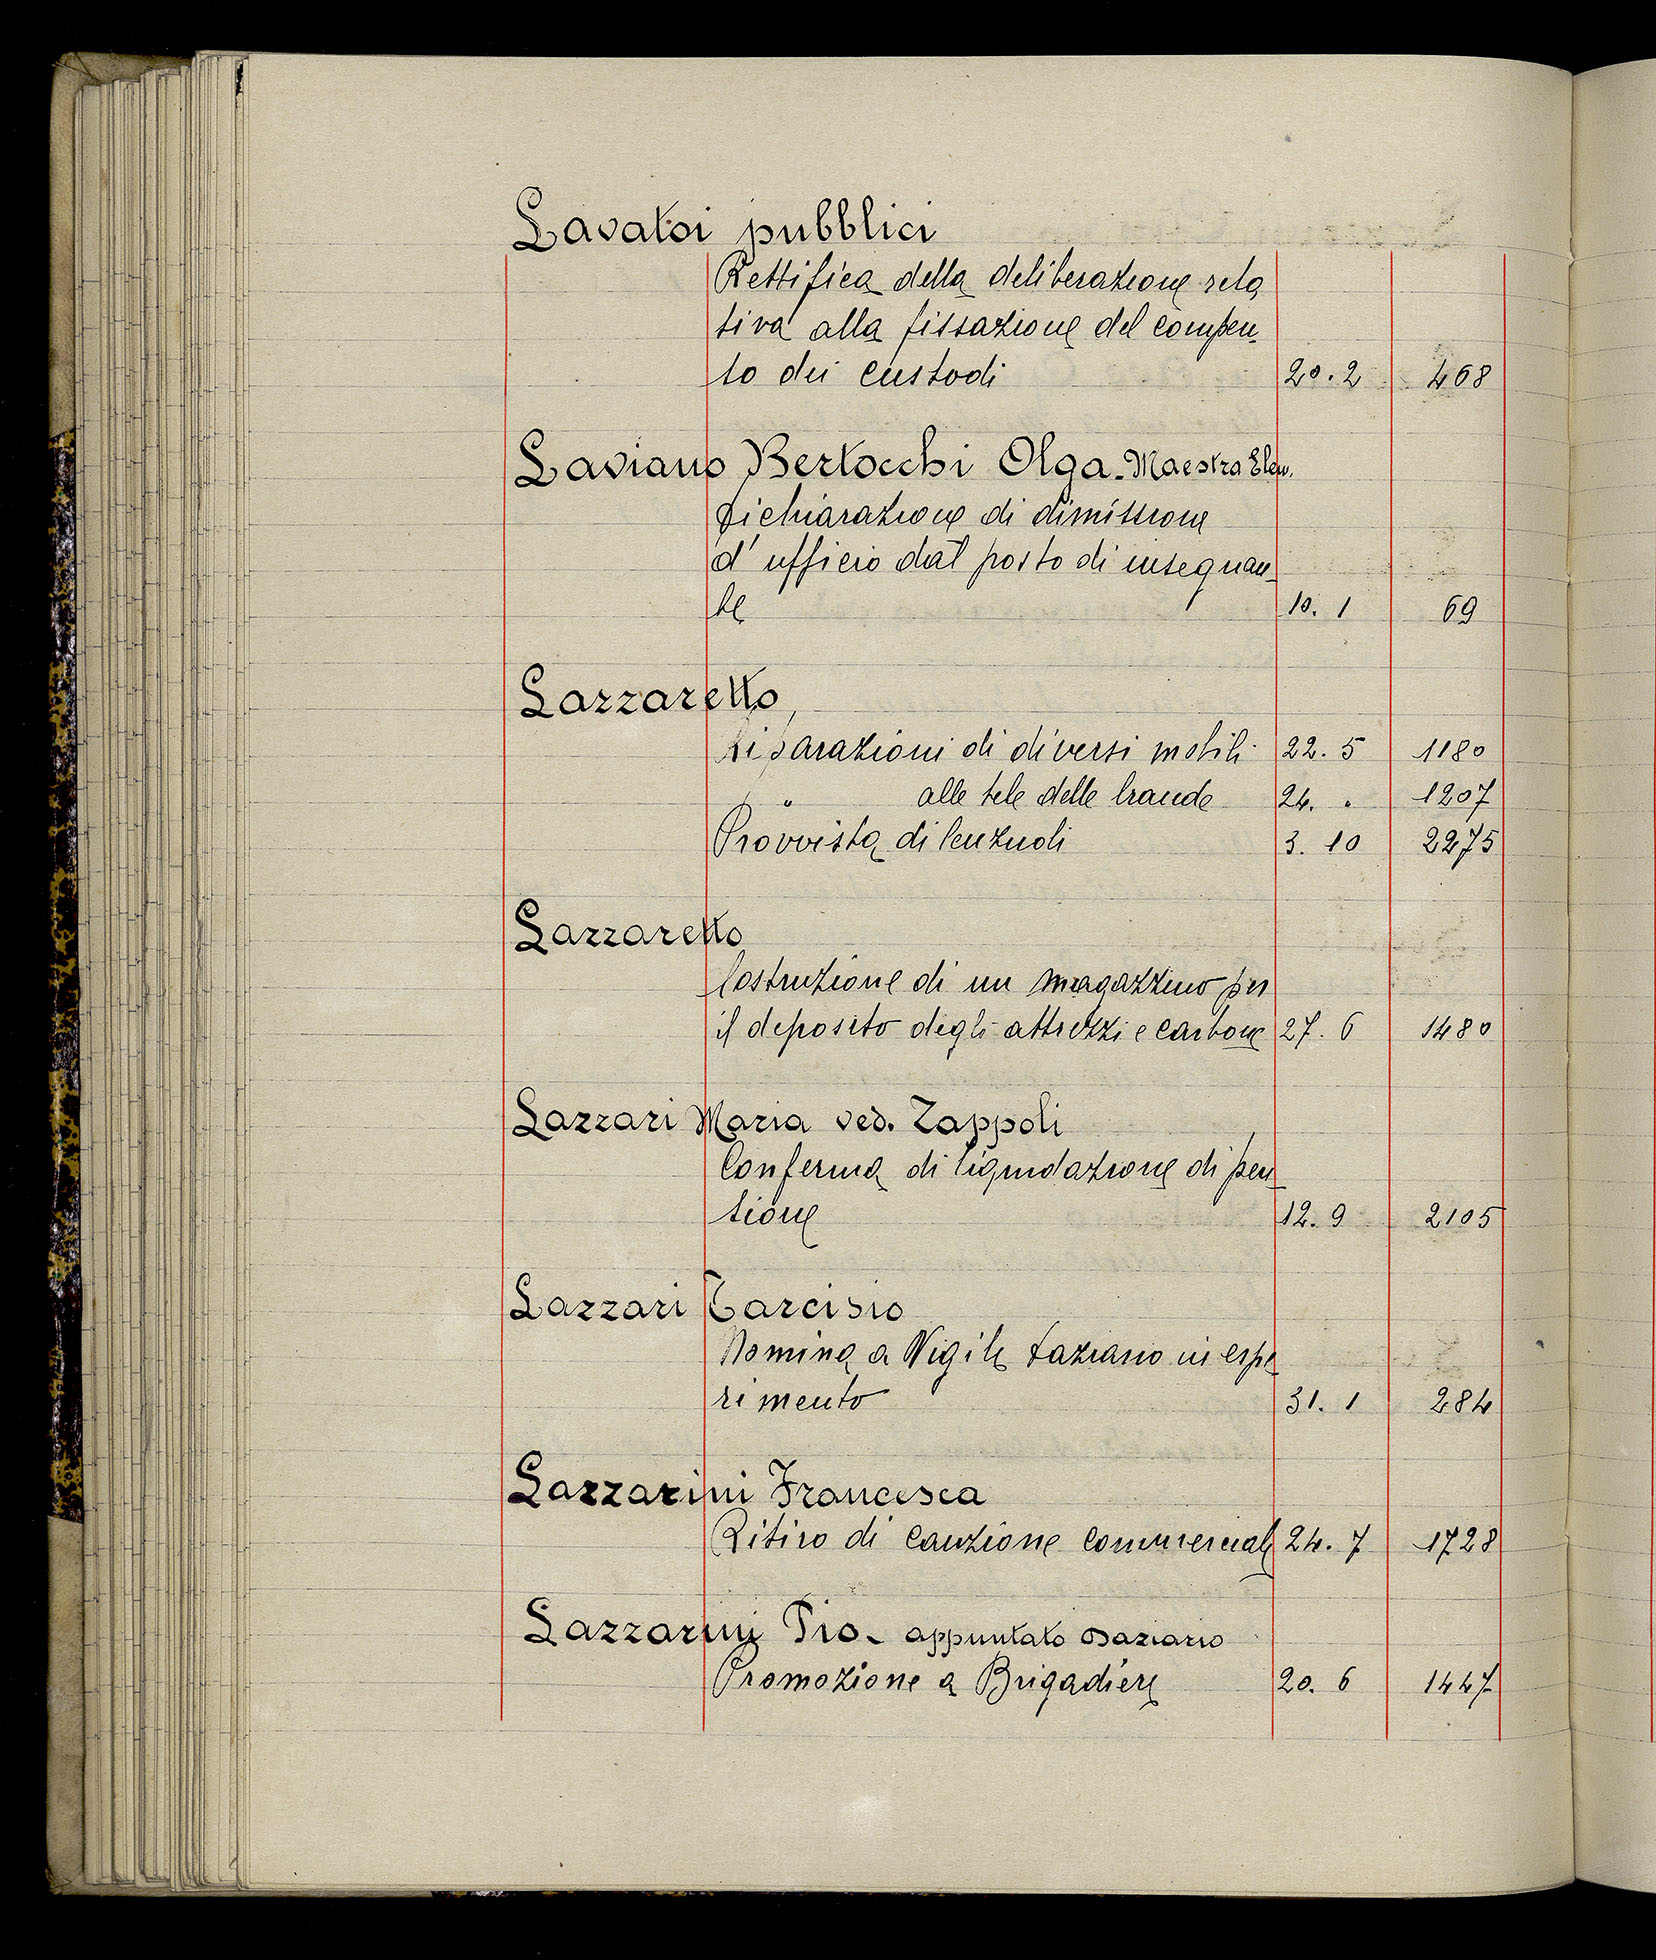 Lavatoi pubblici
Rettifica della deliberazione rela
tiva alla fissazione del compen-
so dei custodi 20.2 468
Laviano Bertocchi Olga - Maestra Elem.
Dichiarazione di dimissione
d'ufficio dal posto di insegnan-
te 10. 1 69
Lazzaretto
Riparazioni di diversi mobili 22. 5 1180
" alle tele delle brande 24. " 1207
Provvista di lenzuoli 3. 10 2275
Lazzaretto
Costruzione di un magazzino per
il deposito degli attrezzi e carbone 27. 6 1480
Lazzari Maria ved. Zappoli
Conferma di liquidazione di pen
sione 12. 9 2105
Lazzari Tarcisio
Nomina a Vigile daziario in espe
rimento 31. 1 284
Lazzarini Francesca
Ritiro di cauzione commerciale 24. 7 1728
Lazzarini Pio - appuntato daziario
Promozione a Brigadiere 20. 6 1447